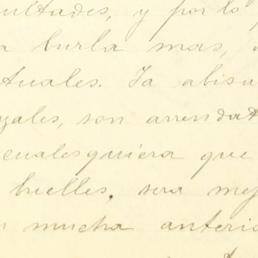 ultades, y por lo
a burla mas,
tuales. Ya abisa
gales, son arrendat
cualesquiera que
buelles. sera mej
n mucha anterio